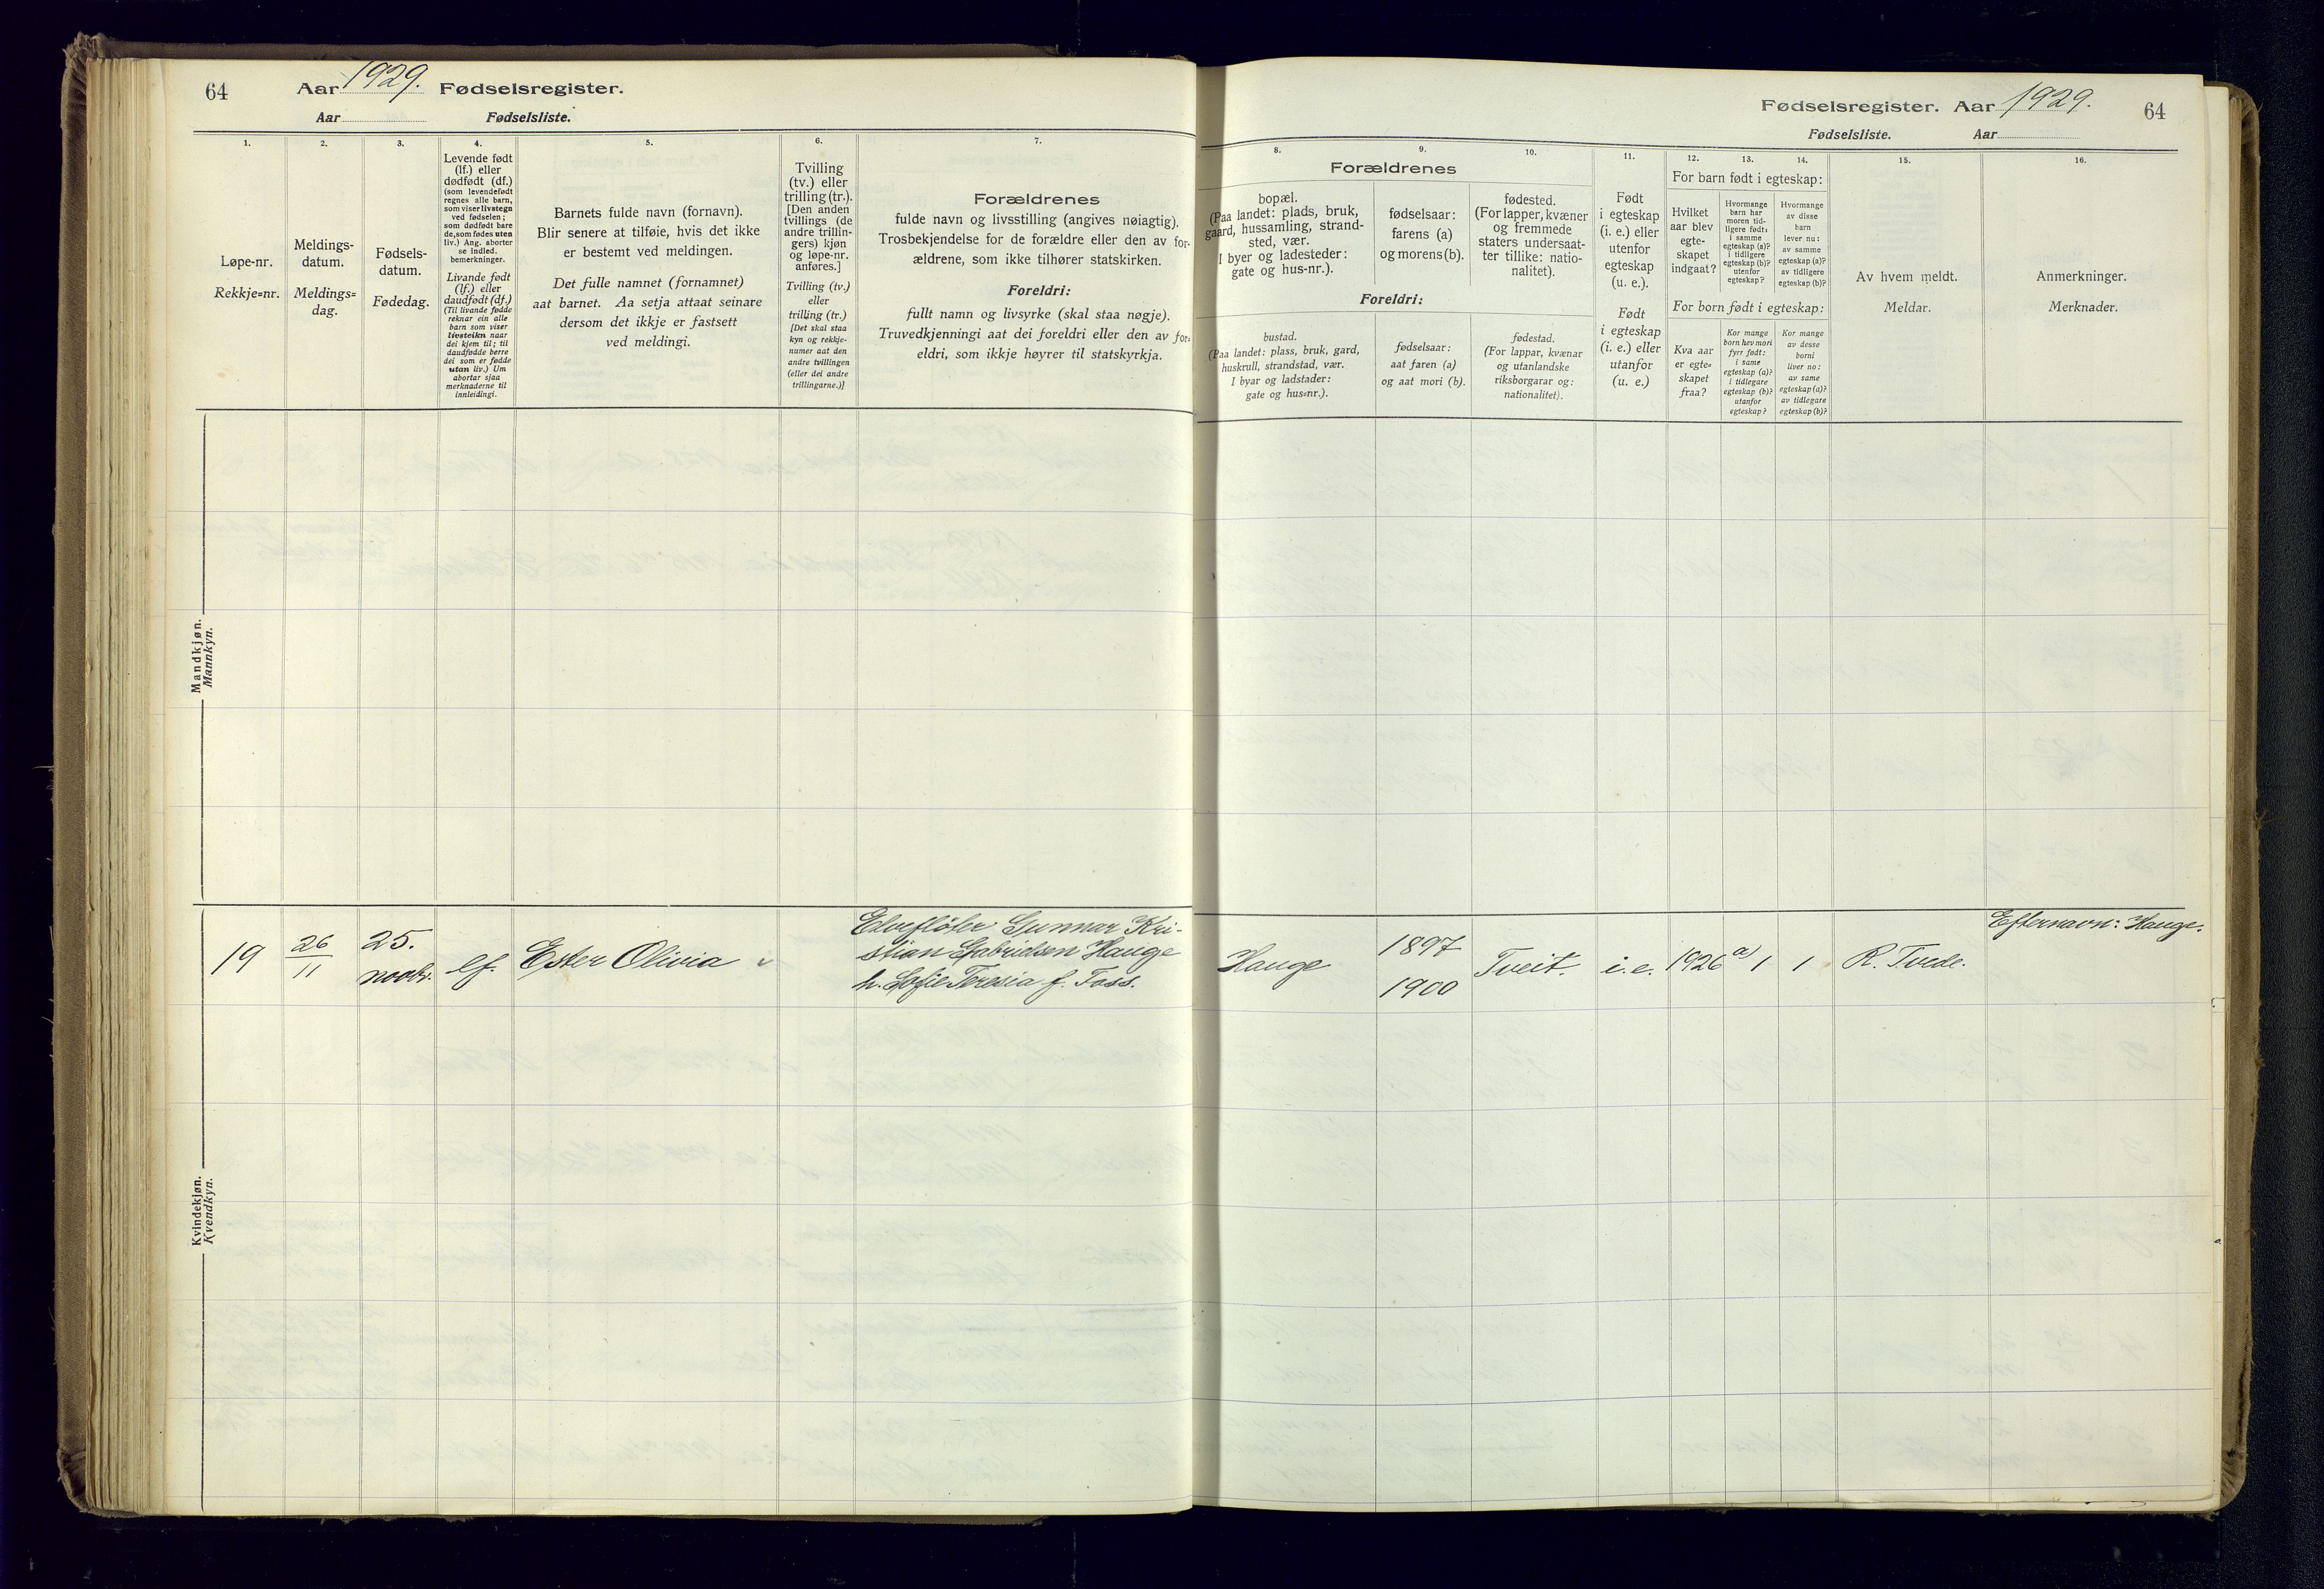 64 Aar 1929. Fødselsregister.
Aar Fødselsliste.
1.
Løpe-nr.
Rekkje=nr.
2.
Meldings-
datum.
Meldings=
dag.
3.
Fødsels-
datum.
Fødedag.
4.
Levende født
(lf.) eller
dødfødt (df.)
(som levendefødt
regnes alle barn,
som viser livstegn
ved fødselen;
som dødfødt bare
de, som fødes uten
liv.) Ang. aborter
se indled.
bemerkninger.
Livande født
(lf.) eller
daudfødt (df.)
(Til livande fødde
reknar ein alle
barn som viser
livsteikn naar
dei kjem til; til
daudfødde berre
dei som er fødde
utan liv.) Um
abortar sjaa
merknaderne til
innleidingi.
5.
Barnets fulde navn (fornavn).
Blir senere at tilføie, hvis det ikke
er bestemt ved meldingen.
Det fulle namnet (fornamnet)
aat barnet. Aa setja attaat seinare
dersom det ikkje er fastsett
ved meldingi.
6.
Tvilling
(tv.) eller
trilling (tr.).
[Den anden
tvillings (de
andre trillin-
gers) kjøn
og løpe-nr.
anføres.]
Tvilling (tv.)
eller
trilling (tr.)
[Det skal staa
kyn og rekkje-
numer aat den
andre tvillingen
(eller dei andre
trillingarne.)]
7.
Forældrenes
fulde navn og livsstilling (angives nøiagtig).
Trosbekjendelse for de forældre eller den av for-
ældrene, som ikke tilhører statskirken.
Foreldri:
fullt namn og livsyrke (skal staa nøgje).
Truvedkjenningi aat dei foreldri eller den av for-
eldri, som ikkje høyrer til statskyrkja.
Mandkjøn.
Mannkyn.
19 26/11 25. novbr. lf. Ester Olivia
Elvefløter Gunnar Kri-
stian Gabrielsen Hauge
h. Sofie Teresia f. Foss.
Kvindekjøn.
Kvendkyn.
Fødselsregister. Aar 1929. 64
Fødselsliste. Aar
8.
Forældrenes
bopæl.
(Paa landet: plads, bruk,
gaard, hussamling, strand-
sted, vær.
I byer og ladesteder:
gate og hus-nr.).
Foreldri:
bustad.
(Paa landet: plass, bruk, gard,
huskrull, strandstad, vær.
I byar og ladstader:
gate og hus=nr.).
9.
fødselsaar:
farens (a)
og morens (b).
fødselsaar:
aat faren (a)
og aat mori (b).
10.
fødested.
(For lapper, kvæner
og fremmede
staters undersaat-
ter tillike: natio-
nalitet).
fødestad.
(For lappar, kvænar
og utanlandske
riksborgarar og:
nationalitet).
11.
Født
i egteskap
(i. e.) eller
utenfor
egteskap
(u. e.).
Født
i egteskap
(i. e.) eller
utanfor
(u. e.)
For barn født i egteskap:
12.
Hvilket
aar blev
egte-
skapet
indgaat?
For born født i egteskap:
Kva aar
er egte=
skapet
fraa?
13.
Hvormange
barn har
moren tid-
ligere født:
i samme
egteskap (a)?
i tidligere
egteskap (b)?
utenfor
egteskap?
Kor mange
born hev mori
fyrr født:
i same
egteskap (a)?
i tidlegare
egteskap (b)?
utanfor
egteskap?
14.
Hvormange
av disse
barn
lever nu:
av samme
egteskap (a)?
av tidligere
egteskap (b)?
Kor mange
av desse
borni
liver no:
av same
egteskap (a)?
av tidlegare
egteskap (b)?
15.
Av hvem meldt.
Meldar.
16.
Anmerkninger.
Merknader.
Hauge 1897 1900 Tveit. i.e. 1926 a) 1 1 R. Tvede. Efternavn: Hauge.